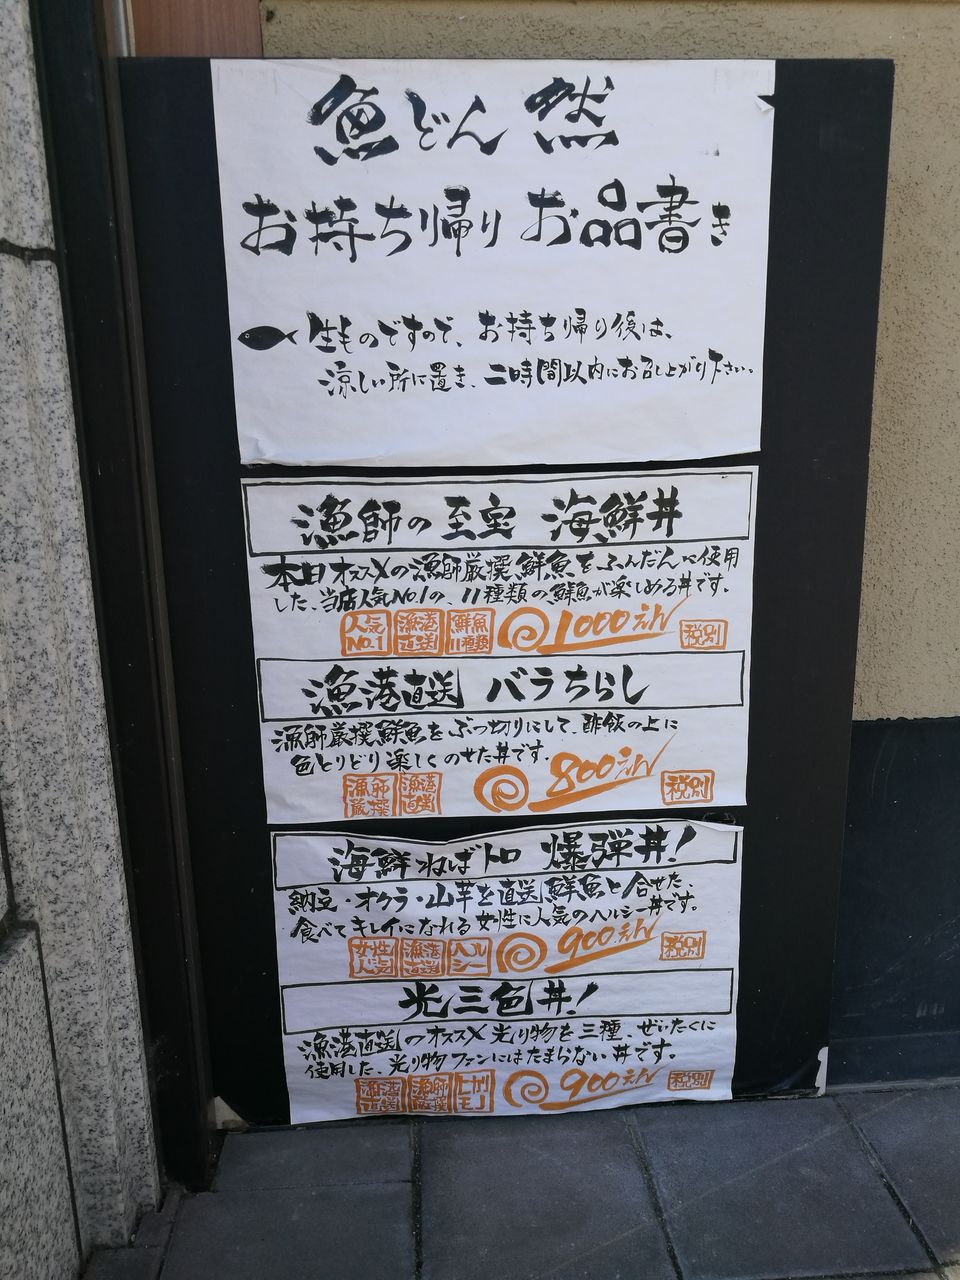 魚どん 然
お持ち帰り お品書き
生ものですので、お持ち帰り後は、
涼しい所に置き、二時間以内にお召し上がり下さい。
漁師の至宝 海鮮丼
本日オススメの漁師厳撰鮮魚をふんだんに使用
した、当店人気No1の、11種類の鮮魚が楽しめる丼です。
人気NO.1 漁港直送 鮮魚11種類 1000えん 税別
漁港直送 バラちらし
漁師厳撰鮮魚をぶつ切りにして、酢飯の上に
色とりどり楽しくのせた丼です。
漁師厳撰 漁港直送 800えん 税別
海鮮ねばトロ 爆弾丼!
納豆・オクラ・山芋を直送鮮魚と合せた、
食べてキレイになれる女性に人気のヘルシー丼です。
女性人気 漁港直送 ヘルシー 900えん 税別
光三色丼!
漁港直送のオススメ光り物を三種、ぜいたくに
使用した、光り物ファンにはたまらない丼です。
漁港直送 漁師厳撰 ヒカリモノ 900えん 税別